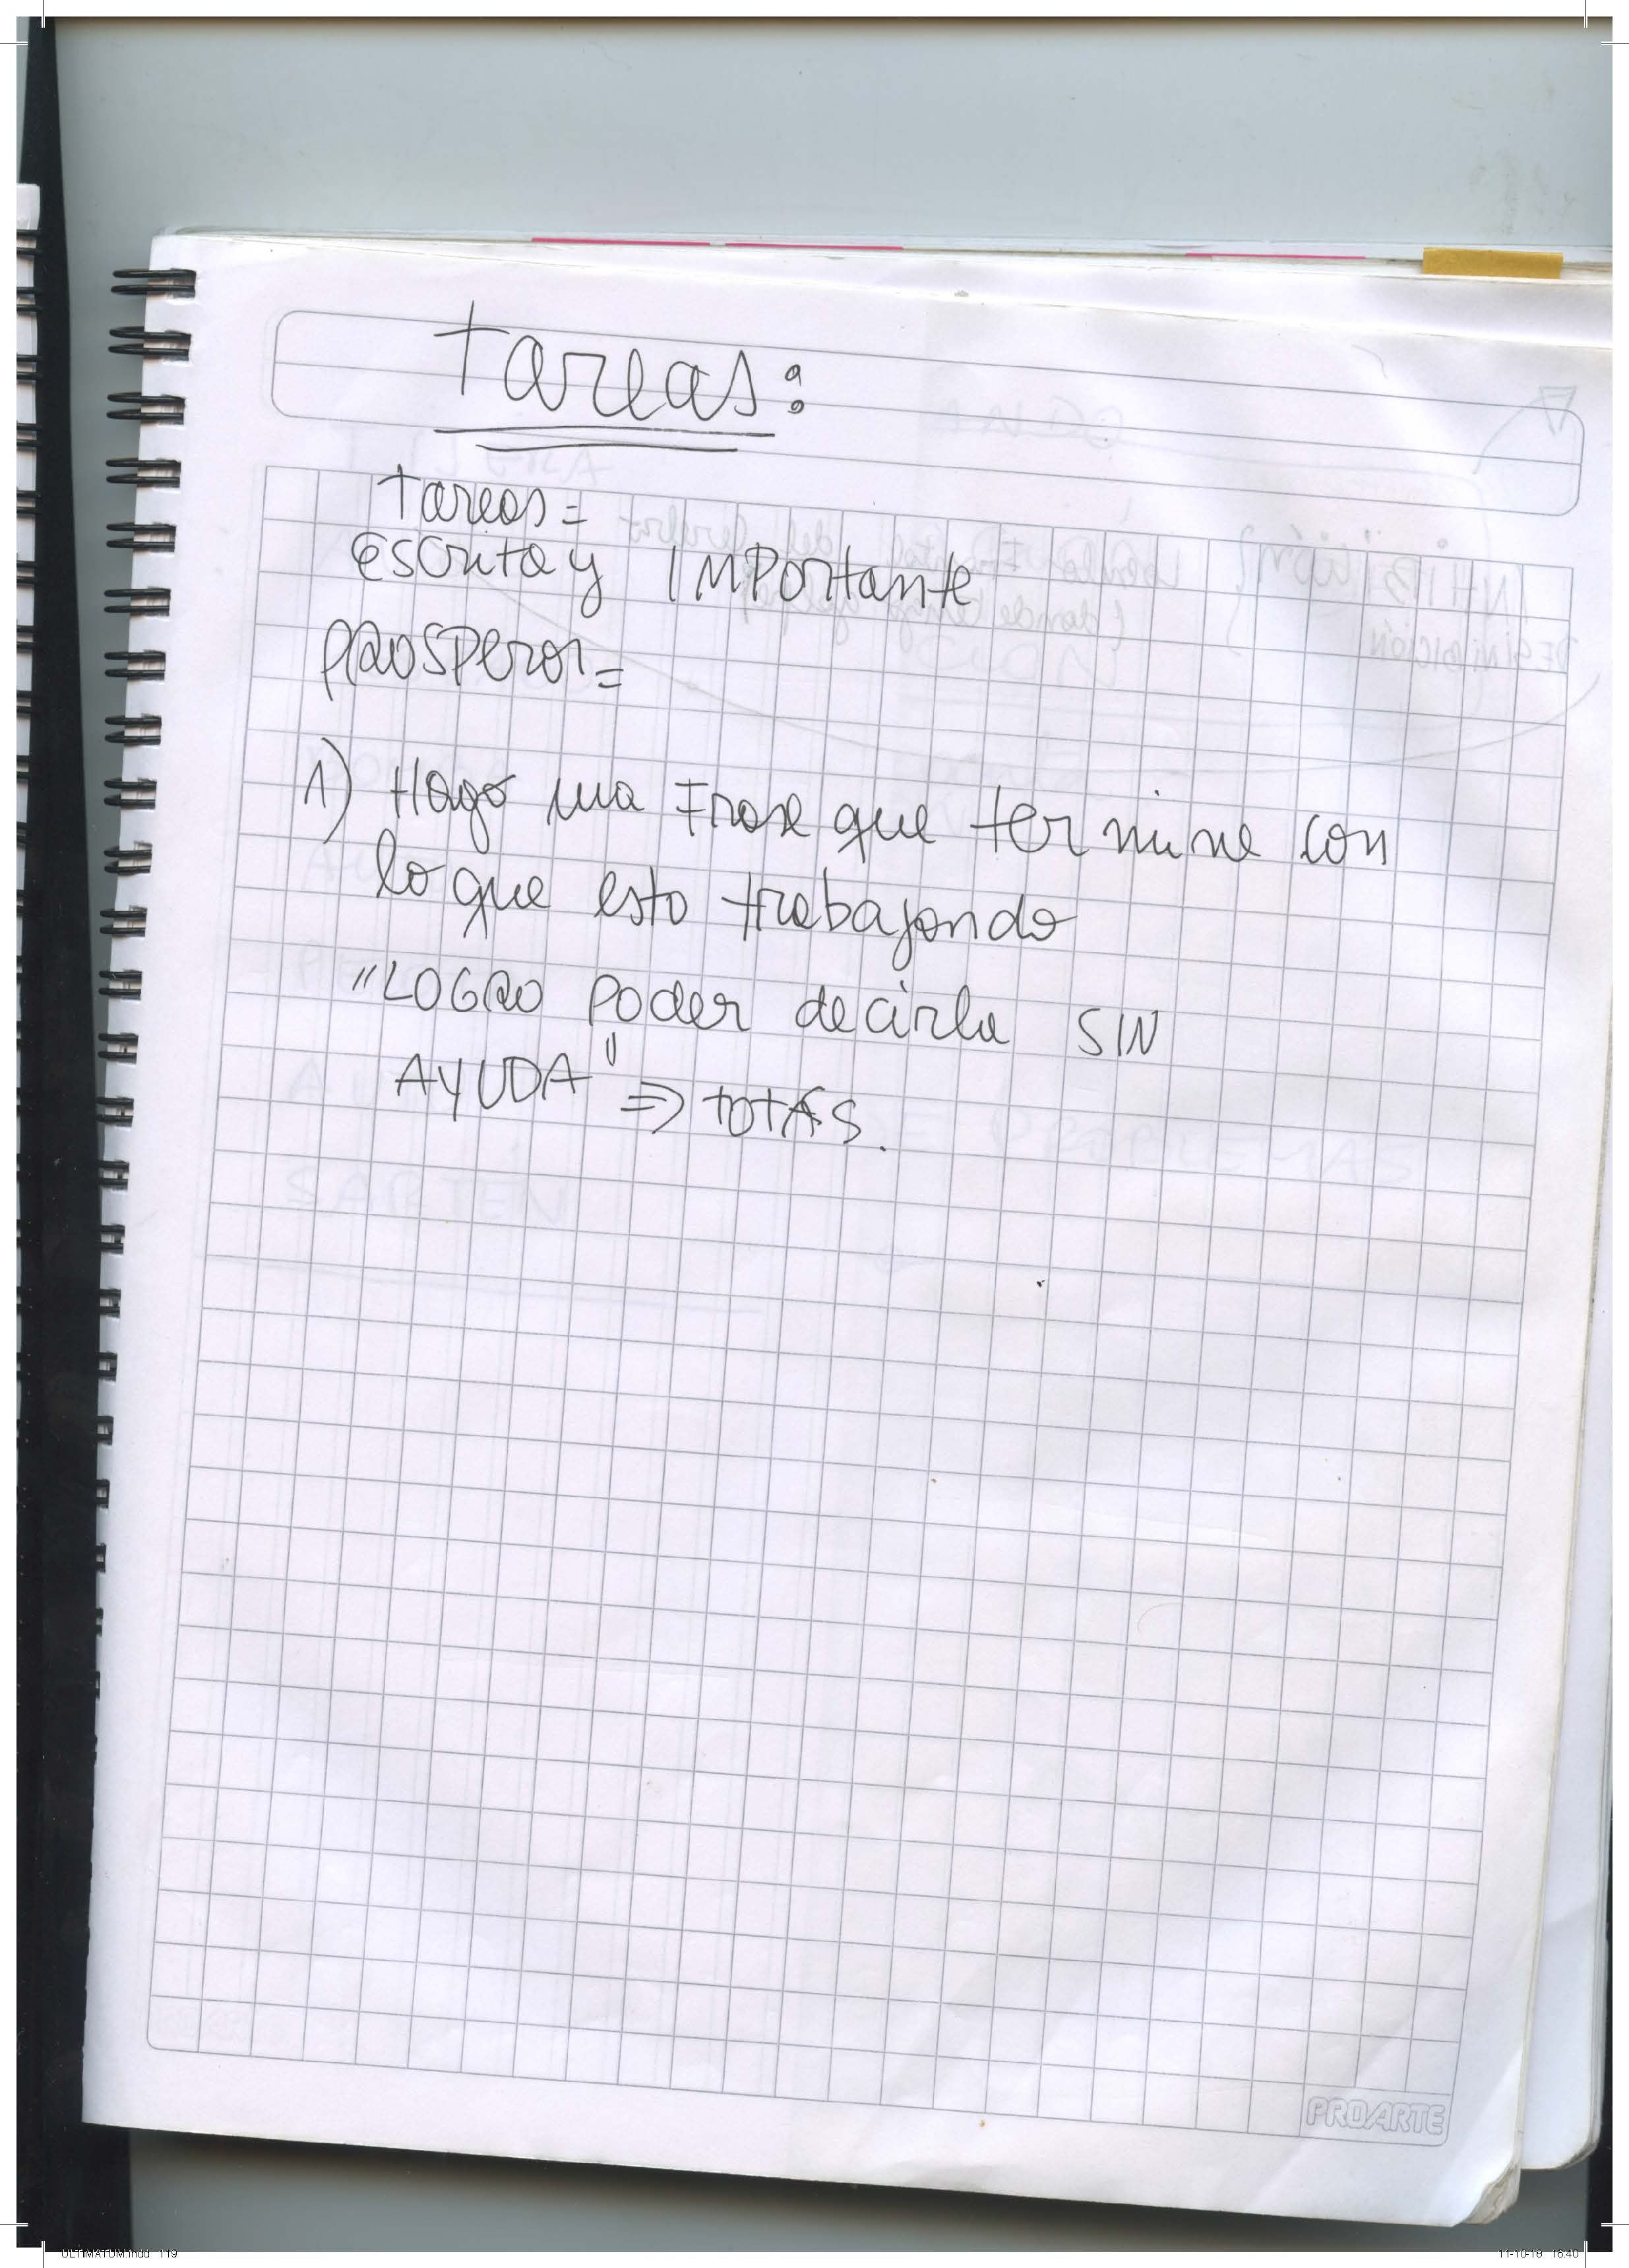 tareas:
tareas=
escrita y IMPortante
PROSPeror=
1) Hago una Frase que termine con
lo que esto trabajando
"LOGRO Poder decirla SIN
AYUDA" => totAS.
PROARTE
ULTIMATUM.indd 119
11-10-18 16:40